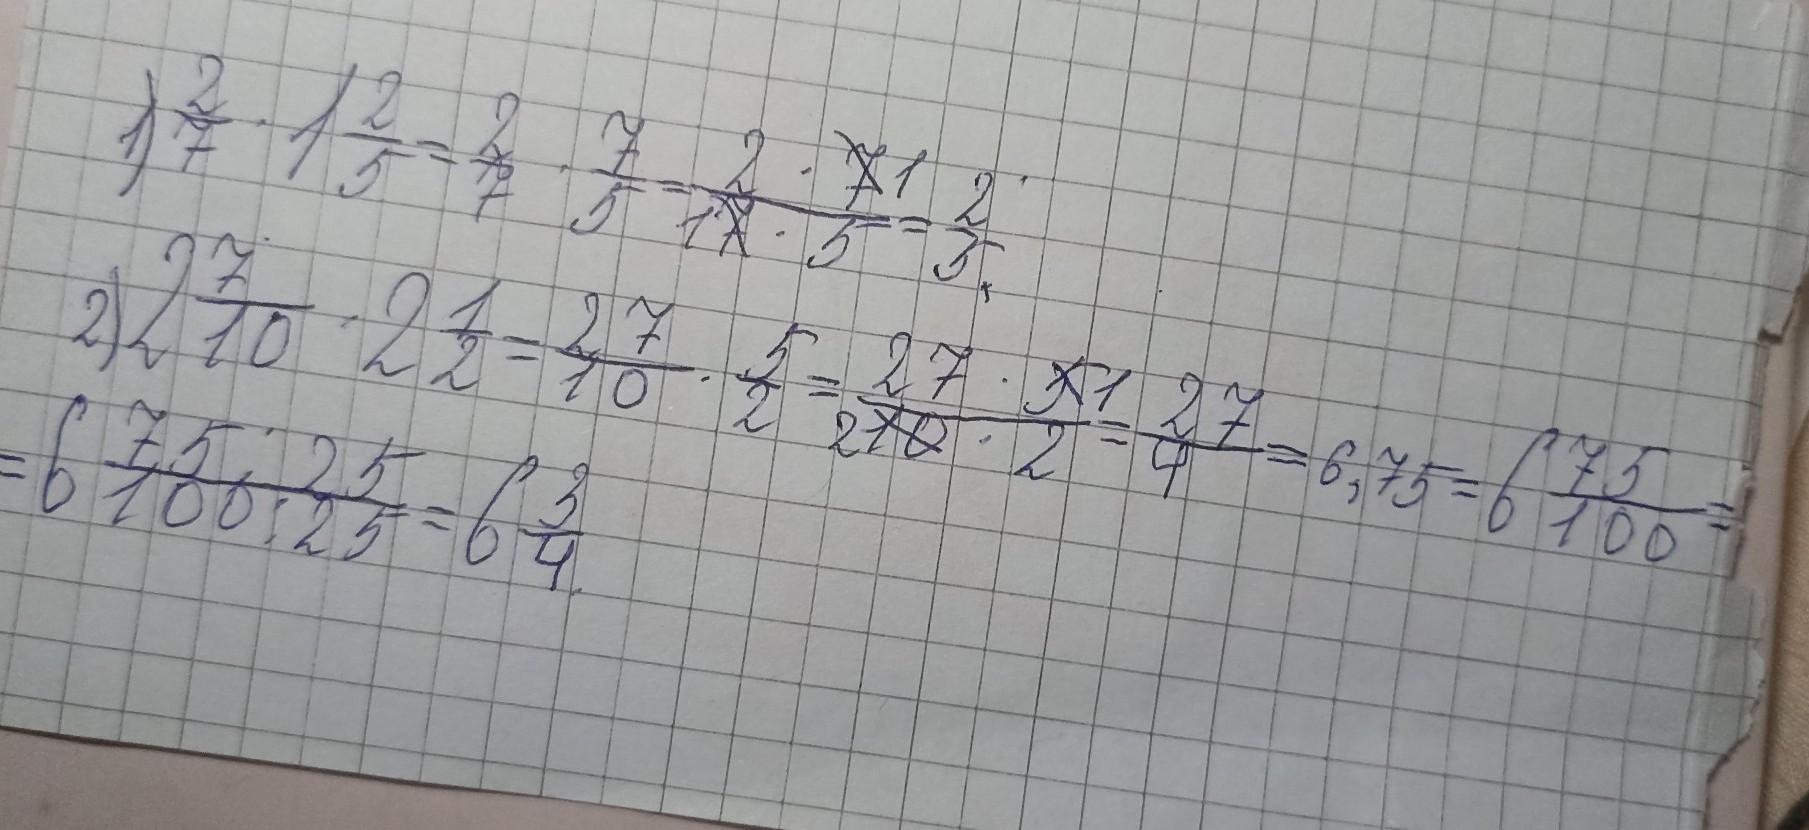 1) 2/7 · 1 2/5 = 2/7 · 7/5 = 2 · 7 1 / 1 7 · 5 = 2/5.
2) 2 7/10 · 2 1/2 = 27/10 · 5/2 = 27 · 5 1 / 2 10 · 2 = 27/4 = 6,75 = 6 75/100 =
= 6 75:25/100:25 = 6 3/4.